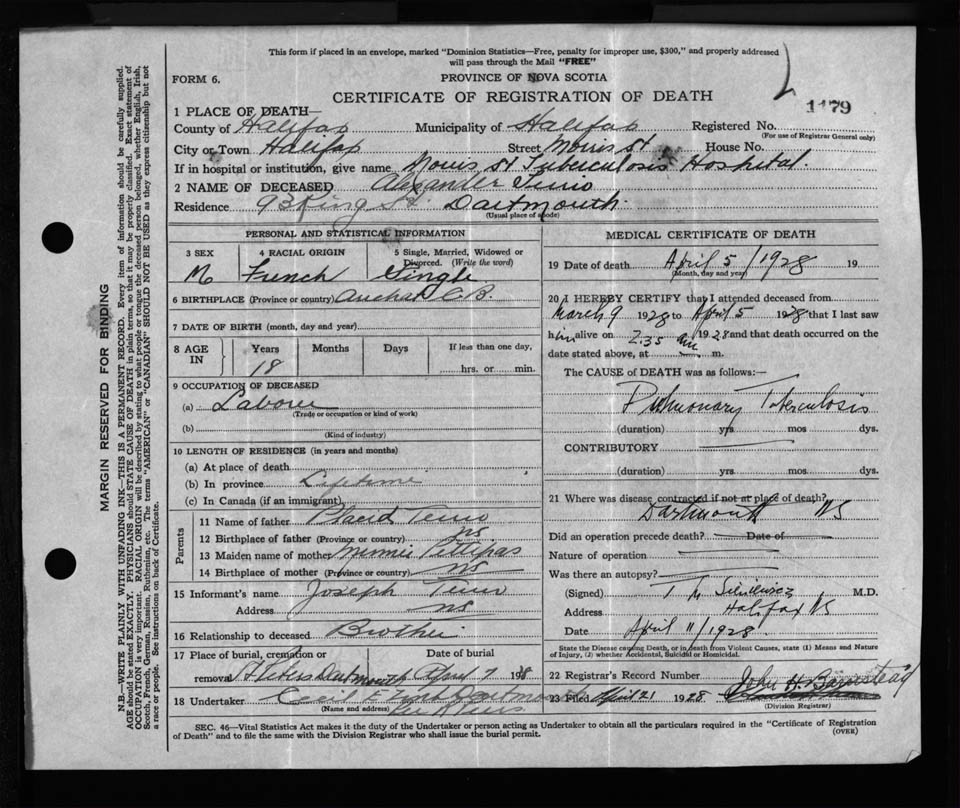 This form if placed in an envelope, marked "Dominion Statistics—Free, penalty for improper use, $300," and properly addressed
will pass through the Mail "FREE"
FORM 6.
PROVINCE OF NOVA SCOTIA
CERTIFICATE OF REGISTRATION OF DEATH
1479
1 PLACE OF DEATH—
County of Halifax Municipality of Halifax Registered No.
(For use of Registrar General only)
City or Town Halifax Street Morris St House No.
If in hospital or institution, give name Morris St Tuberculosis Hospital.
2 NAME OF DECEASED Alexander
Residence 93 King St. Dartmouth.
(Usual place of abode)
PERSONAL AND STATISTICAL INFORMATION
3 SEX 4 RACIAL ORIGIN 5 Single, Married, Widowed or
Divorced. (Write the word)
M French Single
6 BIRTHPLACE (Province or country) Arichat C.B.
7 DATE OF BIRTH (month, day and year)
8 AGE IN Years Months Days If less than one day,
18 hrs. or min.
9 OCCUPATION OF DECEASED
(a) Laborer
(Trade or occupation or kind of work)
(b)
(Kind of industry)
10 LENGTH OF RESIDENCE (in years and months)
(a) At place of death
(b) In province Lifetime
(c) In Canada (if an immigrant)
Parents
11 Name of father Placid
12 Birthplace of father (Province or country) NS
13 Maiden name of mother Pettipas
14 Birthplace of mother (Province or country) NS
15 Informant's name Joseph
Address NS
16 Relationship to deceased Brother
17 Place of burial, cremation or Date of burial
removal Dartmouth April 7 1928
18 Undertaker Cecil E Dartmouth
(Name and address)
MEDICAL CERTIFICATE OF DEATH
19 Date of death April 5/1928 19
(Month, day and year)
20 I HEREBY CERTIFY that I attended deceased from
March 9 1928 to April 5 1928 that I last saw
him alive on 1928 and that death occurred on the
date stated above, at 2.35 am m.
The CAUSE OF DEATH was as follows:—
Pulmonary Tuberculosis
(duration) yrs mos dys.
CONTRIBUTORY
(duration) yrs. mos dys.
21 Where was disease contracted if not at place of death?
Dartmouth NS
Did an operation precede death? Date of
Nature of operation
Was there an autopsy?
(Signed) M.D.
Address Halifax NS
Date April 11/1928.
State the Disease causing Death, or in death from Violent Causes, state (1) Means and Nature
of Injury, (2) whether Accidental, Suicidal or Homicidal.
22 Registrar's Record Number
23 Filed April 21 1928 John H.
(Division Registrar)
SEC. 46—Vital Statistics Act makes it the duty of the Undertaker or person acting as Undertaker to obtain all the particulars required in the "Certificate of Registration
of Death" and to file the same with the Division Registrar who shall issue the burial permit.
(OVER)
MARGIN RESERVED FOR BINDING
N.B.—WRITE PLAINLY WITH UNFADING INK—THIS IS A PERMANENT RECORD. Every item of information should be carefully supplied.
AGE should be stated EXACTLY. PHYSICIANS should STATE CAUSE OF DEATH in plain terms, so that it may be properly classified. Exact statement of
OCCUPATION is very important. RACIAL ORIGIN will be described by stating to what people or tongue the deceased person belonged, whether English, Irish,
Scotch, French, German, Russian, Ruthenian, etc. The terms "AMERICAN" or "CANADIAN" SHOULD NOT BE USED as they express citizenship but not
a race or people. See instructions on back of Certificate.